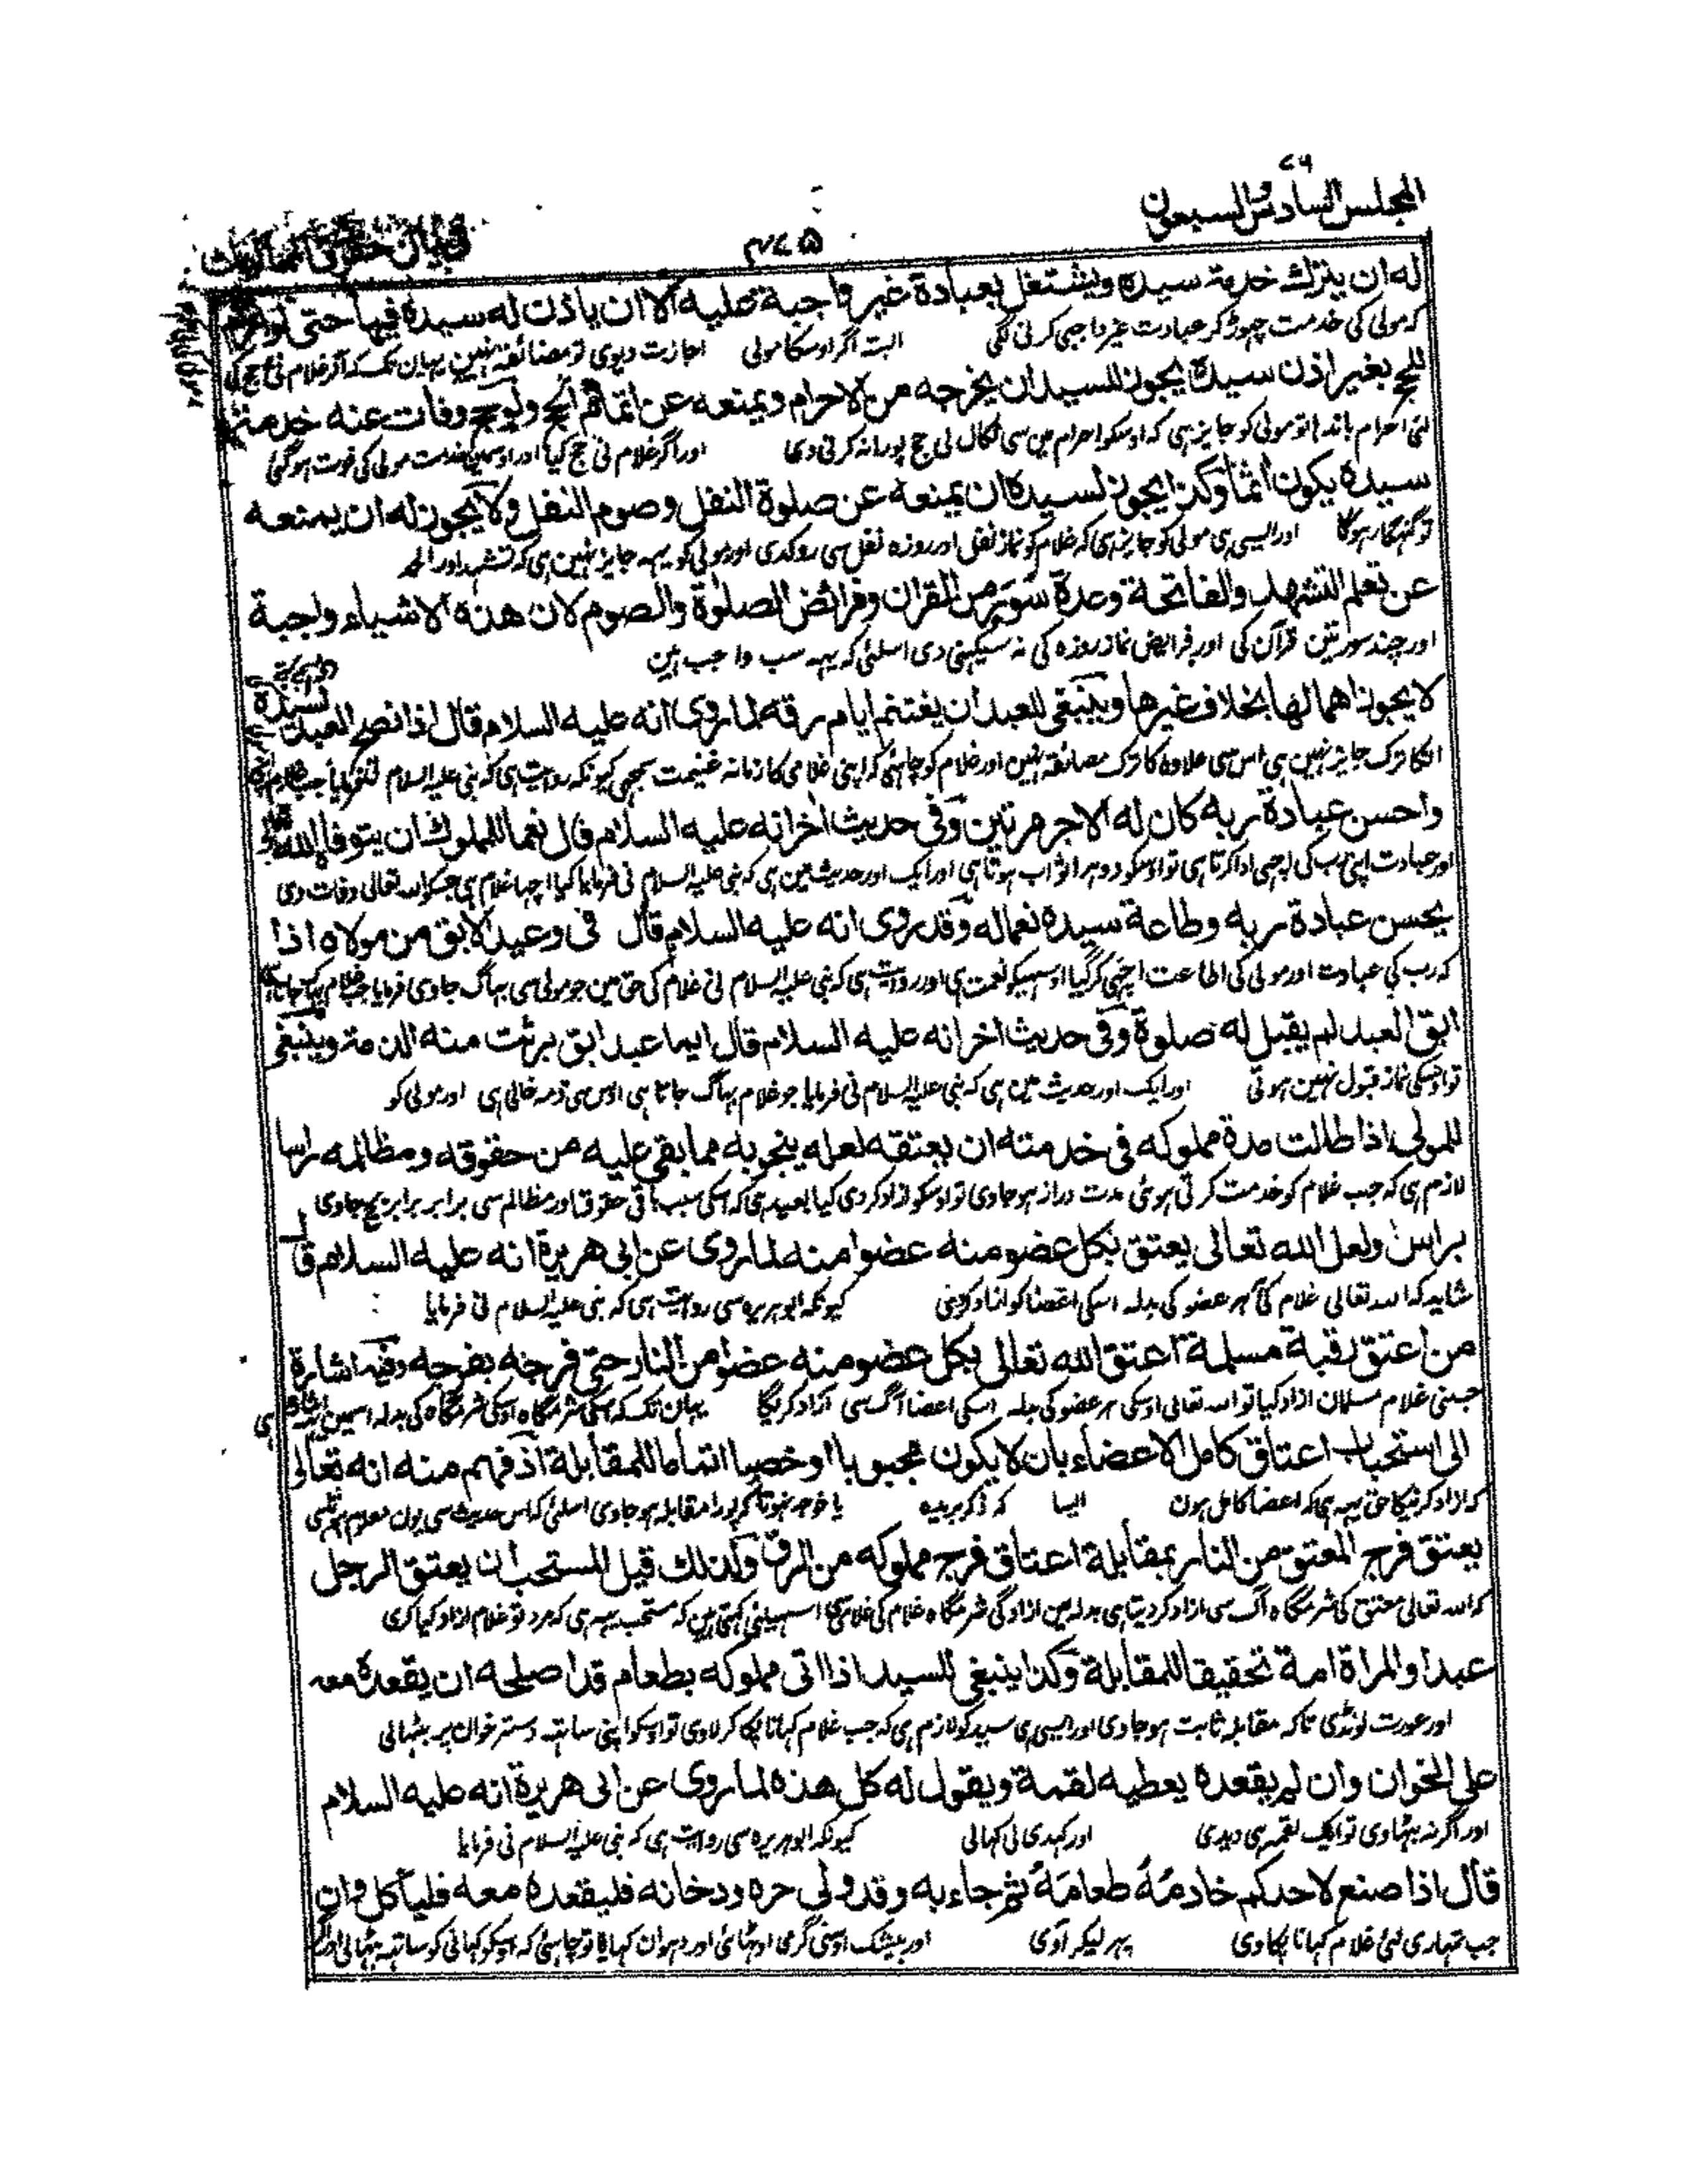 ٧٦
المجلس السادس والسبعون
٤٧٥
فی بیان حقوق الممالیک
له ان یترك خدمة سیده ویشتغل بعبادة غیر واجبة علیه الا ان یاذن له سیده فیها حتی لو احرم
که مولی کی خدمت چهوڑ کر عبادت غیر واجبی کرنی لگی البته اگر اوسکا مولی اجازت دیوی تو مضائقه نہین یہان تک که اگر غلام نی حج کی
للحج بغیر اذن سیده یجوز للسید ان یخرجه من الاحرام ویمنعه عن اتمام الحج ولو حج وفات عنه خدمة
لئی احرام باندہا تو مولی کو جایز ہی که اوسکو احرام مین سی نکال لی حج پورا نه کرنی دی اور اگر غلام نی حج کیا اور اوسمین خدمت مولی کی فوت ہوگئی
سیده یکون اثما وکذا یجوز لسیده ان یمنعه عن صلوة النفل وصوم النفل ولا یجوز له ان یمنعه
تو گنہگار ہوگا اور ایسی ہی مولی کو جایز ہی که غلام کو نماز نفل اور روزه نفل سی روکدی اور مولی کو یہه جایز نہین ہی که تشہد اور الحمد
عن تعلم التشهد والفاتحة وعدة سُوَر من القران وفرائض الصلوة والصوم لان هذه الاشیاء واجبة
اور چند سورتین قرآن کی اور فرایض نماز روزه کی نه سیکہنی دی اسلئی که یہه سب واجب ہین
لا یجوز اهمالها بخلاف غیرها وینبغی للعبد ان یغتنم ایام رقه لما روی انه علیه السلام قال اذا نصح العبد لسیده
انکا ترک جایز نہین ہی اس سی علاوه کا ترک مضائقه نہین اور غلام کو چاہئی که اپنی غلامی کا زمانه غنیمت سمجہی کیونکه روایت ہی که نبی علیه السلام نی فرمایا جب غلام
واحسن عبادة ربه کان له الاجر مرتین وفی حدیث اخر انه علیه السلام قال نعما للمملوك ان یتوفاه الله
اور عبادت اپنی رب کی اچہی ادا کرتا ہی تو اوسکو دوہرا ثواب ہوتا ہی اور ایک اور حدیث مین ہی که نبی علیه السلام نی فرمایا کیا اچہا غلام ہی جسکو الله تعالی وفات دی
یحسن عبادة ربه وطاعة سیده نعما له وقد روی انه علیه السلام قال فی وعید الابق من مولاه اذا
که رب کی عبادت اور مولی کی اطاعت اچہی کر گیا اوسیکو نعمت ہی اور روایت ہی که نبی علیه السلام نی غلام کی حق مین جو مولی سی بہاگ جاوی فرمایا جب غلام بہاگ جاتا ہی
ابق العبد لم یقبل له صلوة وفی حدیث اخر انه علیه السلام قال ایما عبد ابق برئت منه الذمة وینبغی
تو اوسکی نماز قبول نہین ہوتی اور ایک اور حدیث مین ہی که نبی علیه السلام نی فرمایا جو غلام بہاگ جاتا ہی اوس سی ذمه خالی ہی اور مولی کو
للمولی اذا طالت مدة مملوکه فی خدمته ان یعتقه لعله ینجو به مما بقی علیه من حقوقه ومظالمه راسا
لازم ہی که جب غلام کو خدمت کرتی ہوئی مدت دراز ہو جاوی تو اوسکو ازاد کر دی کیا بعید ہی که اسکی سبب باقی حقوق اور مظالم سی برابر برابر بچ جاوی
براس ولعل الله تعالی یعتق بکل عضو منه عضوا منه لما روی عن ابی هریرة انه علیه السلام قال
شاید که الله تعالی غلام کی ہر عضو کی بدله اسکی اعضا کو ازاد کردی کیونکه ابوہریره سی روایت ہی که نبی علیه السلام نی فرمایا
من اعتق رقبة مسلمة اعتق الله تعالی بکل عضو منه عضوا من النار حتی فرجه بفرجه وفیه اشارة
جسنی غلام مسلمان ازاد کیا تو الله تعالی اوسکی ہر عضو کی بدله اسکی اعضا آگ سی آزاد کریگا یہان تک که اسکی شرمگاه اوسکی شرمگاه کی بدله اسمین اشاره ہی
الی استحباب اعتاق کامل الاعضاء بان لا یکون مجبوبا او خصیا اتماما للمقابلة اذ فهم منه انه تعالی
که ازاد کرنیکا حق یہه ہی که اعضا کامل ہون ایسا که ذکر بریده یا خوجه نہو تاکه پورا مقابله ہو جاوی اسلئی که اس حدیث سی یون معلوم
یعتق فرج المعتق من النار بمقابلة اعتاق فرج مملوکه من الرق وکذلك قیل المستحب ان یعتق الرجل
که الله تعالی معتق کی شرمگاه آگ سی ازاد کر دیتا ہی بدله مین ازادگی شرمگاه غلام کی غلامی سی اسیلئی کہتی ہین که مستحب یہه ہی که مرد تو غلام ازاد کیا کری
عبدا والمراة امة تحقیقا للمقابلة وکذا ینبغی للسید اذا اتی مملوکه بطعام قد اصلحه ان یقعده معه
اور عورت لونڈی تاکه مقابله ثابت ہو جاوی اور ایسی ہی سید کو لازم ہی که جب غلام کہانا پکا کر لاوی تو اوسکو اپنی ساتہه دسترخوان پر بٹہالی
علی الخوان وان لم یقعده یعطیه لقمة ویقول له کل هذه لما روی عن ابی هریرة انه علیه السلام
اور اگر نه بٹہاوی تو ایک لقمه ہی دیدی اور کہدی لی کہالی کیونکه ابوہریره سی روایت ہی که نبی علیه السلام نی فرمایا
قال اذا صنع لاحدکم خادمُهُ طعامَهُ ثم جاء به وقد ولی حره ودخانه فلیقعده معه فلیاکل وان
جب تمہاری لئی غلام کہانا پکاوی پہر لیکر آوی اور بیشک اوسنی گرمی اوٹہائی اور دہوان کہایا تو چاہئی که اوسکو کہانی کو ساتہه بٹہالی اور اگر